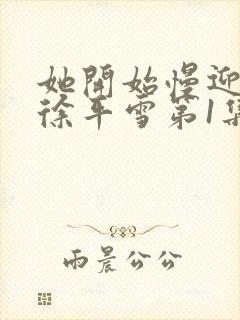 她開始慢迎
徐平雪第1集
雨晨公公